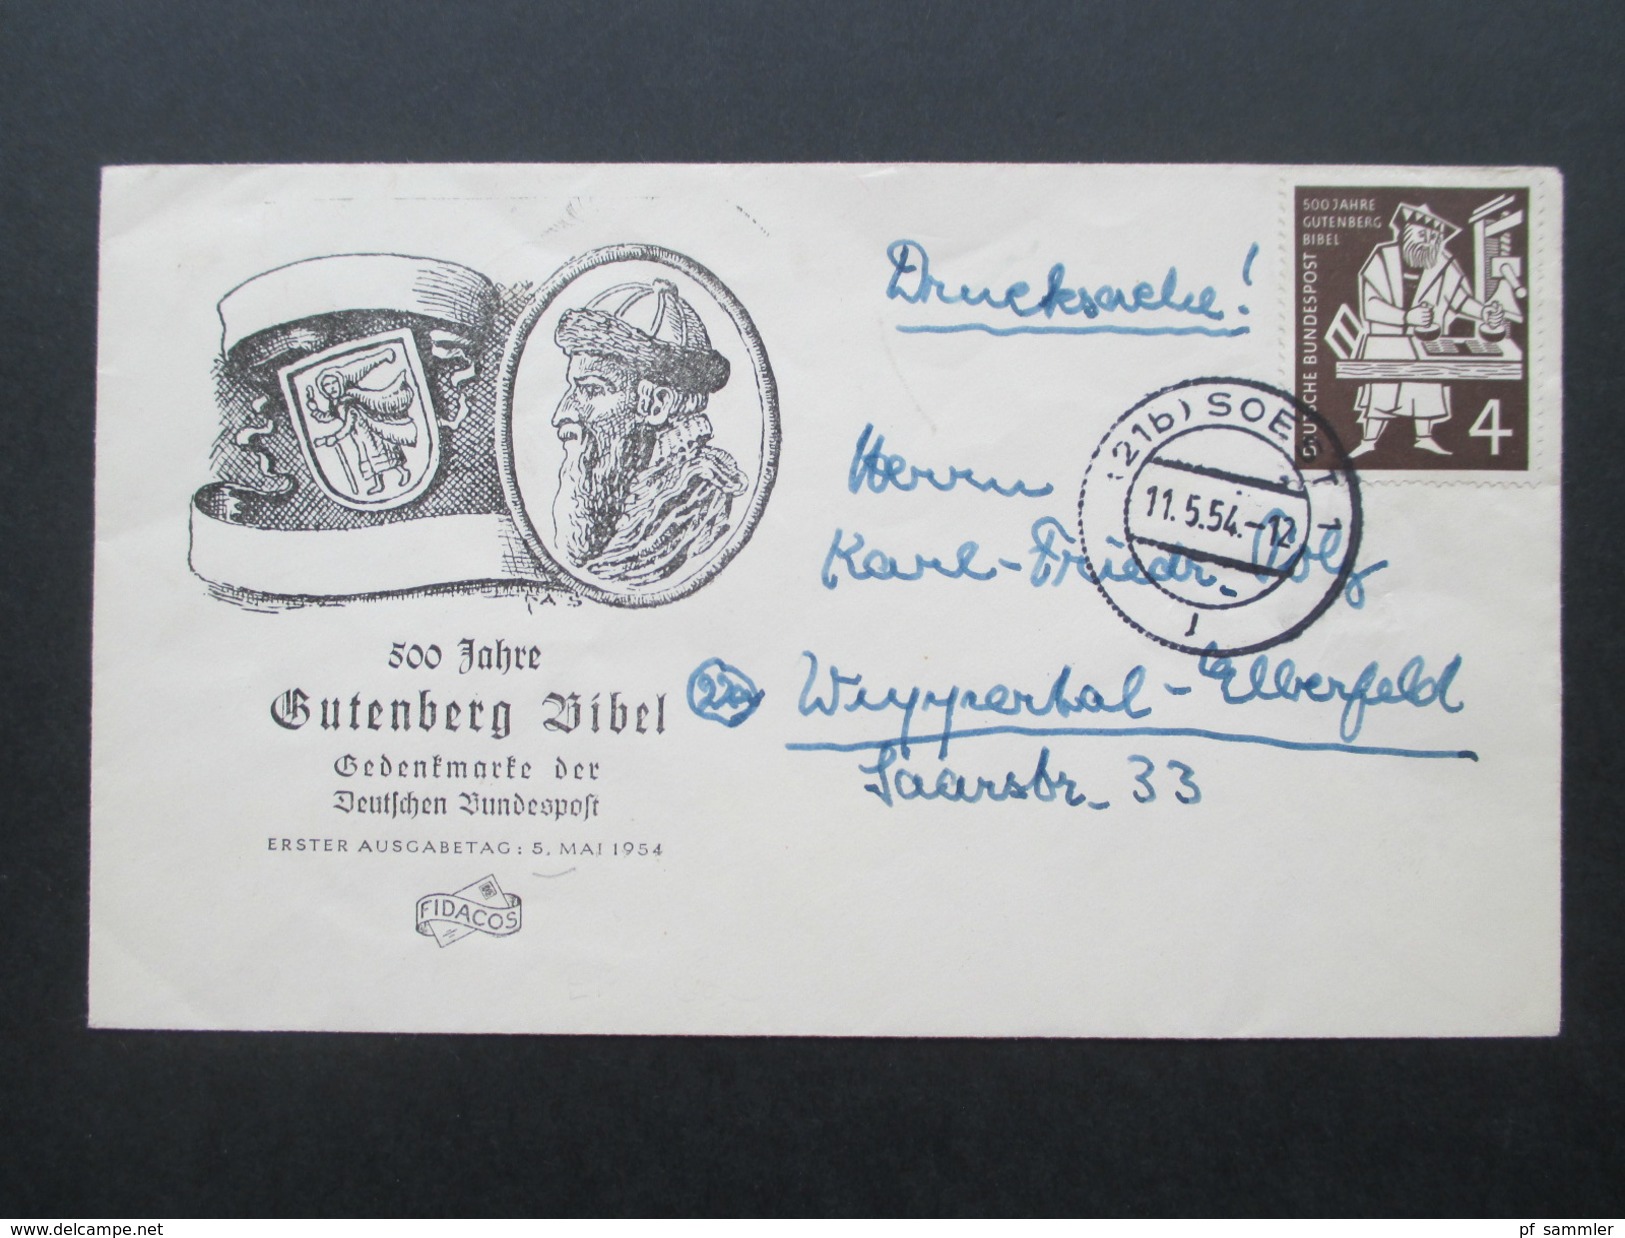 500 JAHRE
GUTENBERG
BIBEL
DEUTSCHE BUNDESPOST
4
Drucksache!
(21b) SOEST 1
11.5.54.-12
Herrn
Karl-Friedr.
Wuppertal-Elberfeld
Saarstr. 33
500 Jahre
Gutenberg Bibel
Gedenkmarke der
Deutschen Bundespost
ERSTER AUSGABETAG: 5. MAI 1954
FIDACOS
www.delcampe.net
pf_sammler